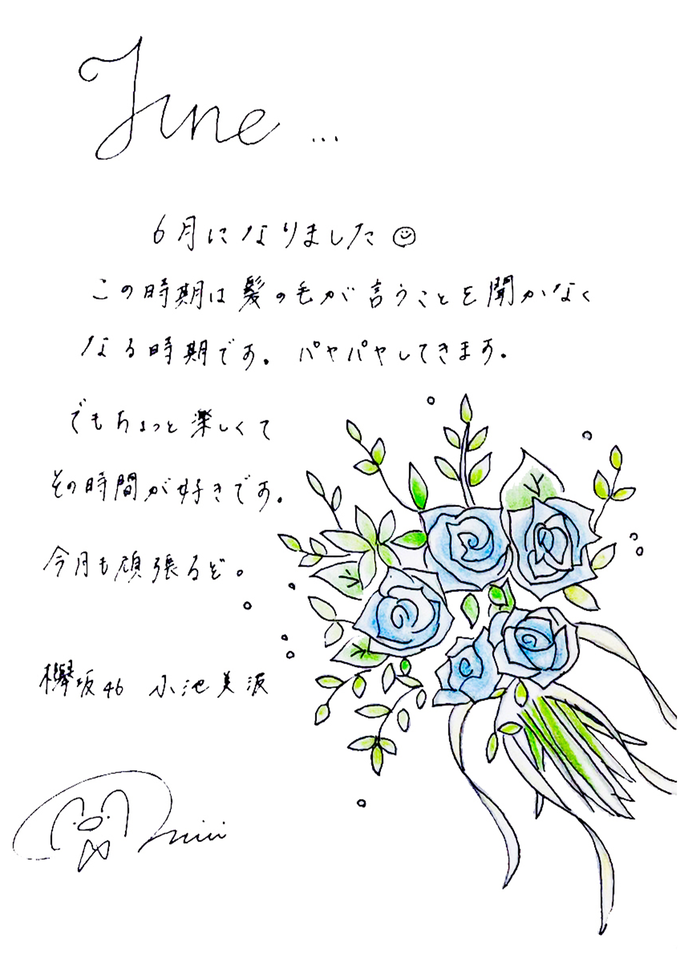 June ...
6月になりました☺
この時期は髪の毛が言うことを聞かなく
なる時期です。パヤパヤしてきます。
でもちょっと楽しくて
その時間が好きです。
今月も頑張るぞ。
欅坂46 小池美波